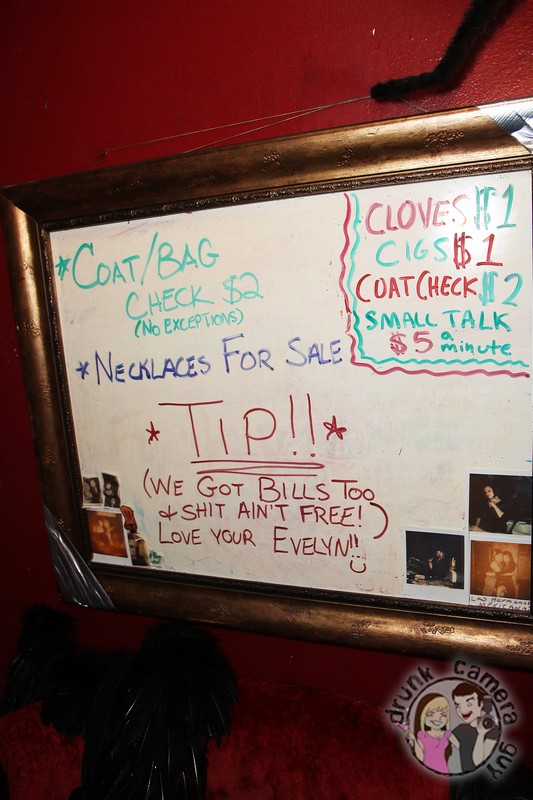 *COAT/BAG
CHECK $2
(NO EXCEPTIONS)
*NECKLACES FOR SALE
CLOVES $1
CIGS $1
COATCHECK $2
SMALL TALK
$5 a minute
*TIP!!*
(WE GOT BILLS TOO
& SHIT AIN'T FREE!)
LOVE YOUR EVELYN!!
drunk camera guy